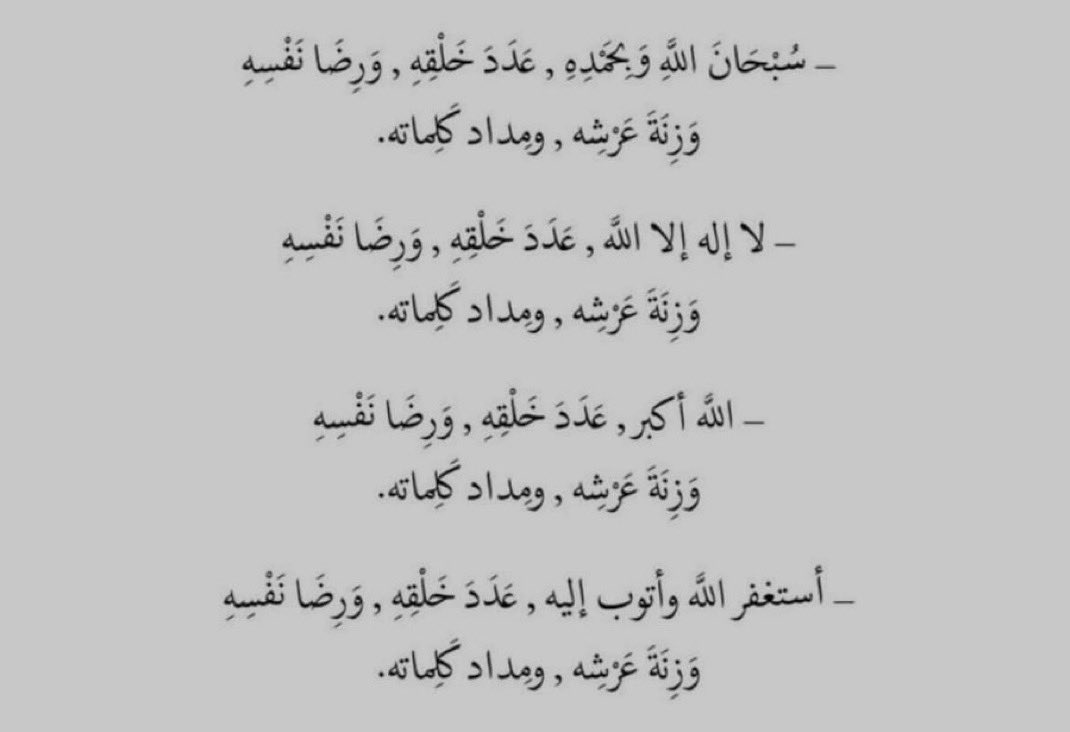 – سُبْحَانَ اللَّهِ وَبِحَمْدِهِ , عَدَدَ خَلْقِهِ , وَرِضَا نَفْسِهِ
وَزِنَةَ عَرْشِه , ومِداد كَلِماته.
– لا إله إلا اللَّه , عَدَدَ خَلْقِهِ , وَرِضَا نَفْسِهِ
وَزِنَةَ عَرْشِه , ومِداد كَلِماته.
– اللَّه أكبر , عَدَدَ خَلْقِهِ , وَرِضَا نَفْسِهِ
وَزِنَةَ عَرْشِه , ومِداد كَلِماته.
– أستغفر اللَّه وأتوب إليه , عَدَدَ خَلْقِهِ , وَرِضَا نَفْسِهِ
وَزِنَةَ عَرْشِه , ومِداد كَلِماته.